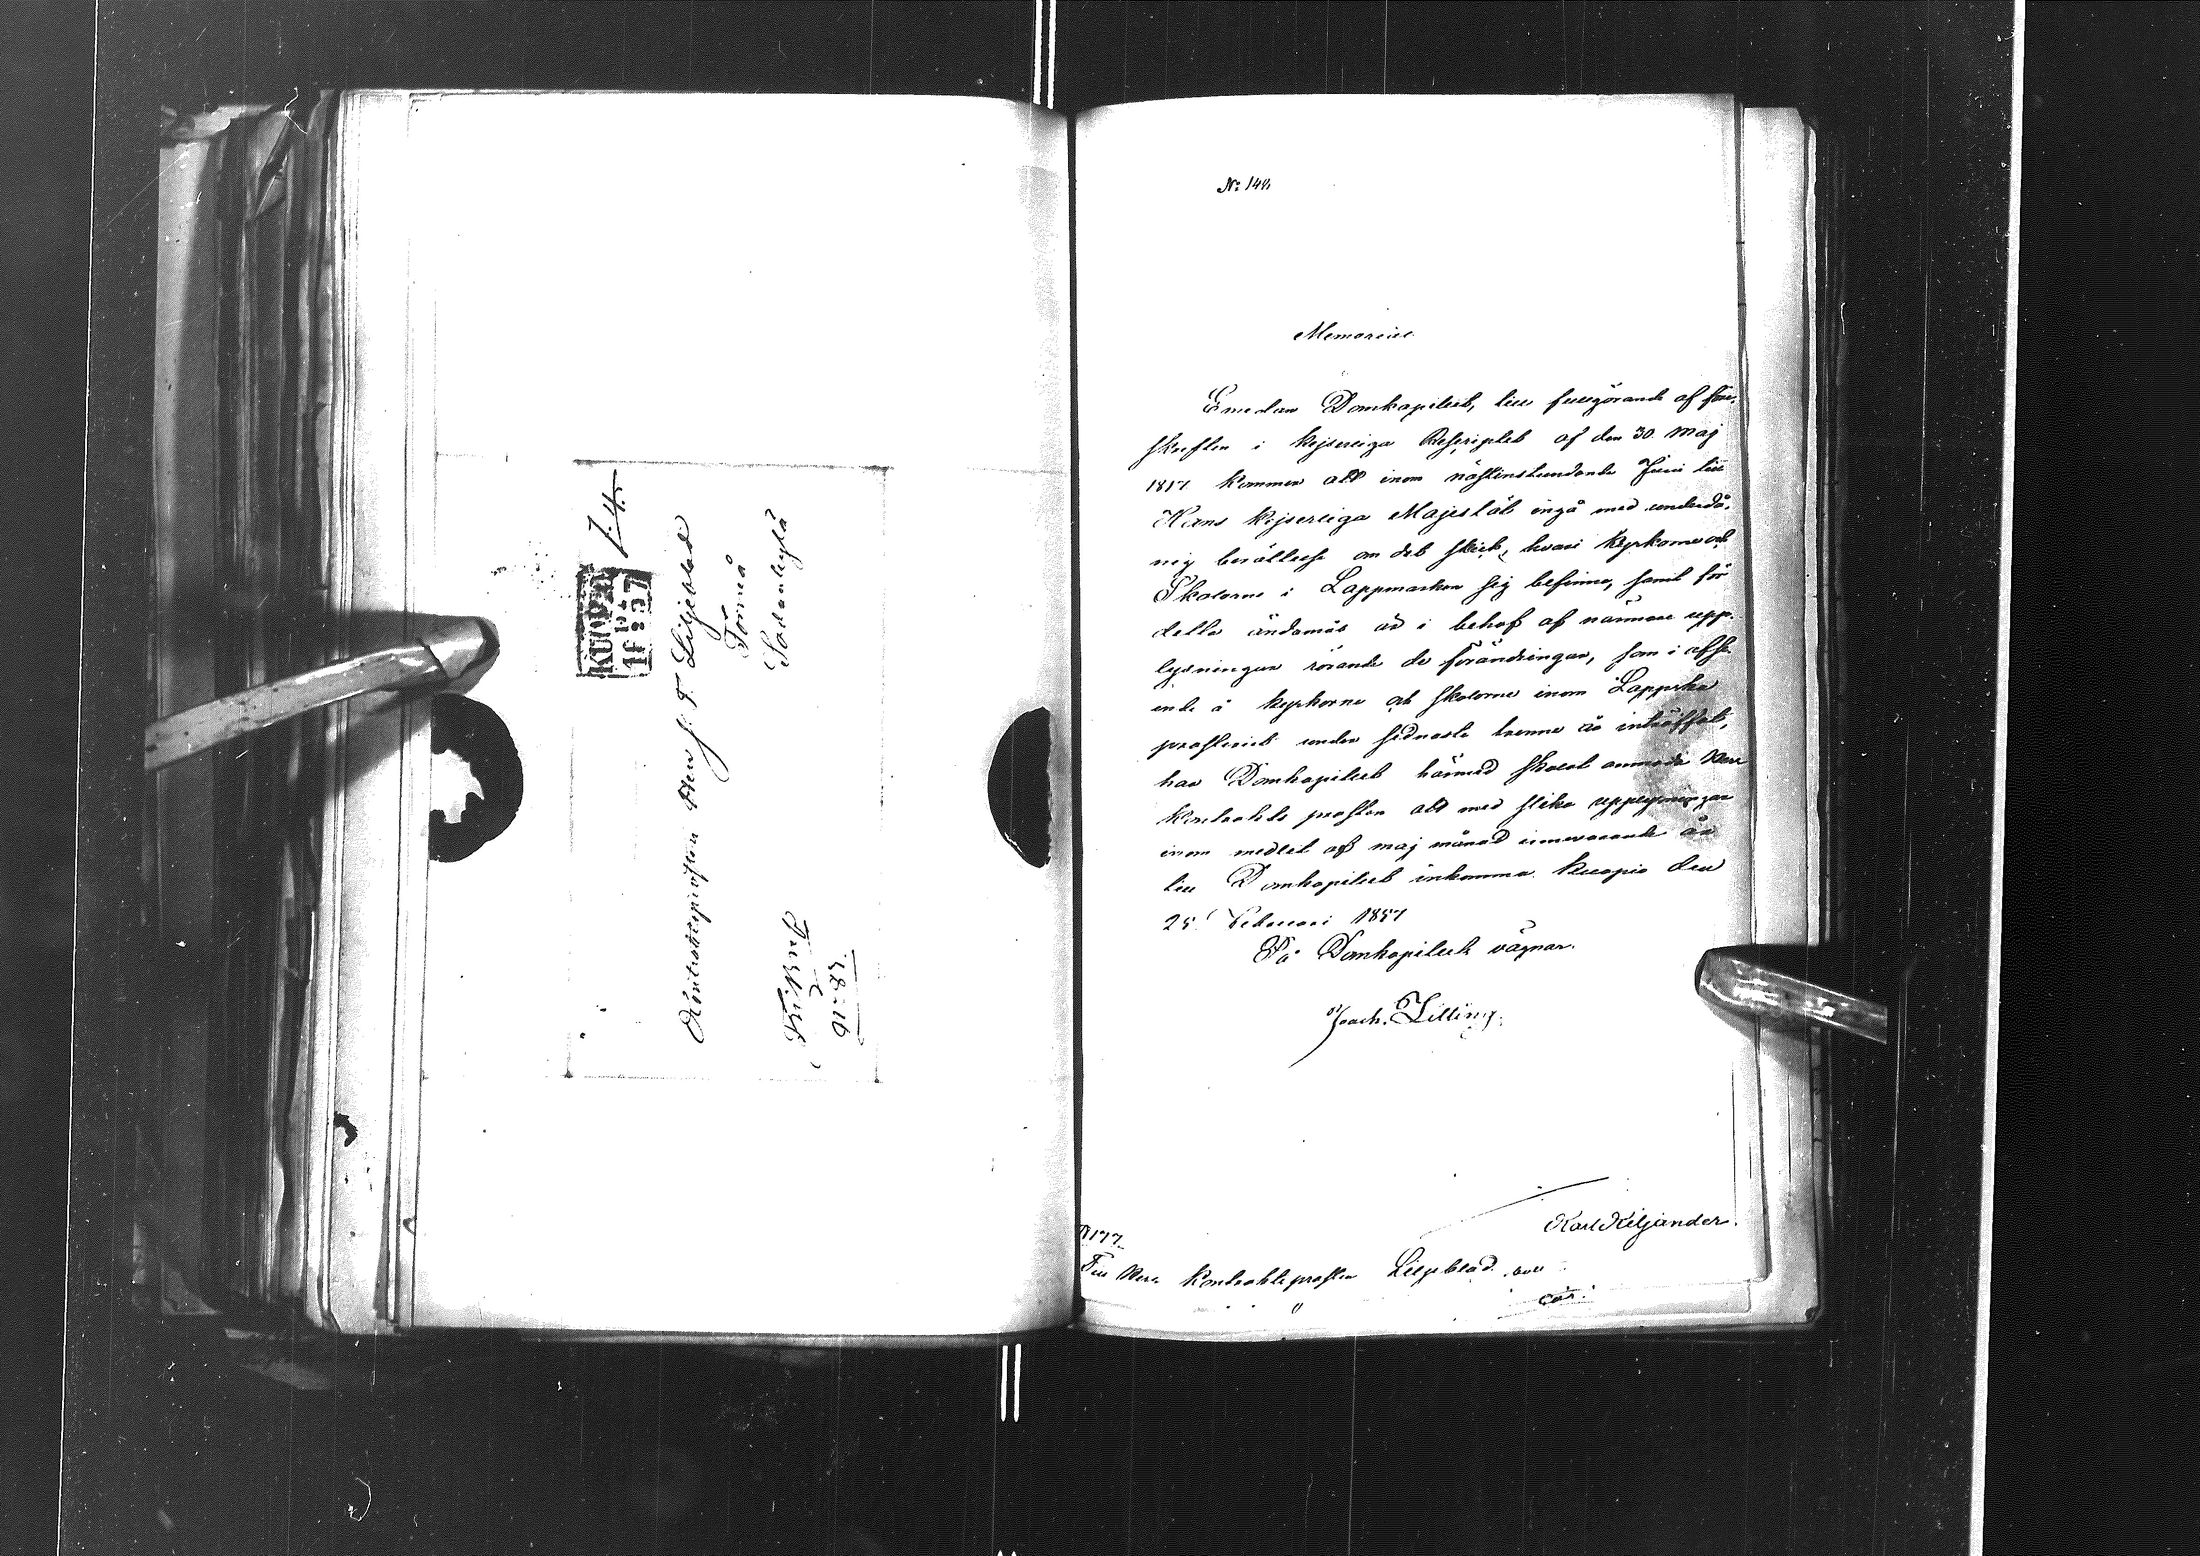 J. 4.
KUOPIO
1857
Kontraktsprosten Herr J. F. Liljeblad
Torneå
Sodankylä
Fribref
91-83.
No 148
Memorial
Emedan Domkapitlet, till fullgörande af före-
skriften i Kejserliga Rescriptet af den 30 Maj
1817 kommer att inom nästinstundande Juni till
Hans Kejserliga Majestät ingå med underdå-
nig berättelse om det skick, hvari Kyrkorne och
Skolorne i Lappmarken sig befinna, samt för
detta ändamål är i behof af närmare upp-
lysningar rörande de förändringar, som i afse-
ende å kyrkorne och skolorne inom Lappska
prosteriet under sednaste trenne år inträffat,
har Domkapitlet härmed skolat anmoda Herr
Kontrakts prosten att med slika upplysningar
inom medlet af maj månad innevarande år
till Domkapitlet inkomma. Kuopio den
25 Februari 1857
På Domkapitlets vägnar.
Joach. Zitting.
Karl Kiljander.
N 177
Till Herr Kontraktsprosten Liljeblad